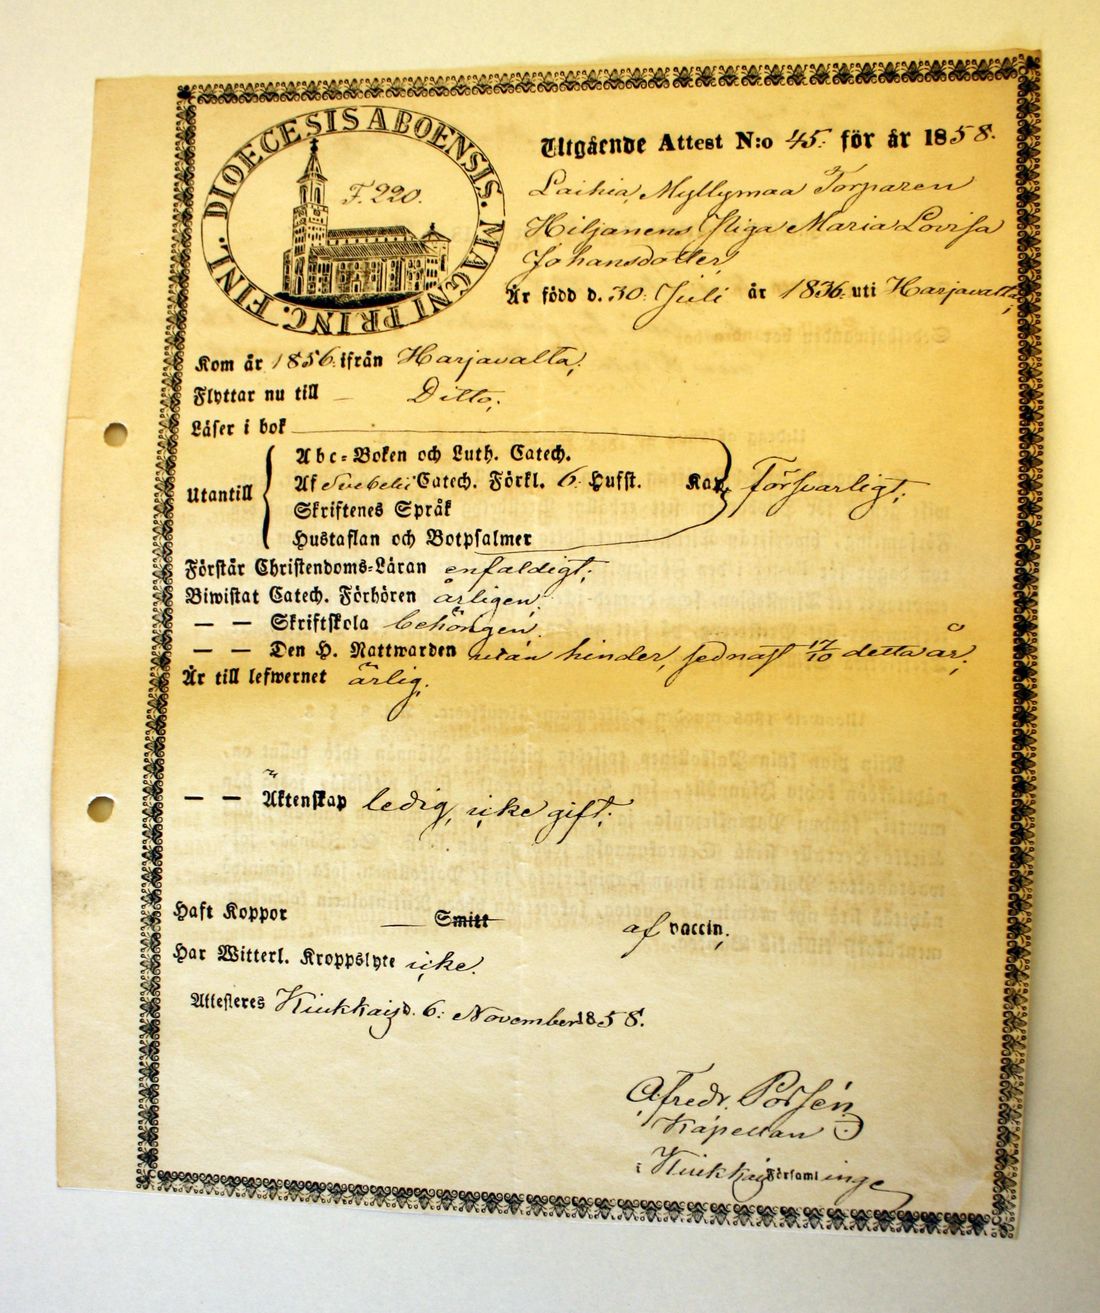 DIOECESIS ABOENSIS. MAGNI PRINC. FINL.
F. 220.
Utgående Attest N:o 45. för år 1858.
Laihia, Myllymaa Torparen
Hiljanens Piga Maria Lovisa
Johansdotter
Är född d. 30. Juli år 1836. uti Harjavalta,
Kom år 1856. ifrån Harjavalta,
Flyttar nu till – Ditto,
Läser i bok
Abc-Boken och Luth. Catech.
Utantill Af Svebelii Catech. Förkl. 6. Hufst. Kan Försvarligt,
Skriftenes Språk
Hustaflan och Botpsalmer
Förstår Christendoms-Läran enfaldigt,
Biwistat Catech. Förhören årligen,
— — Skriftskola behörigen,
— — Den H. Nattwarden utan hinder, sednast 17/10 detta år,
Är till lefwernet ärlig,
— — Äktenskap ledig, icke gift,
Haft Koppor — Smitt af vaccin,
Har Witterl. Kroppslyte icke.
Attesteres Kiukkais d. 6. November 1858.
Alfredr. Porsén
Kapellan
i Kiukkais Församlinge